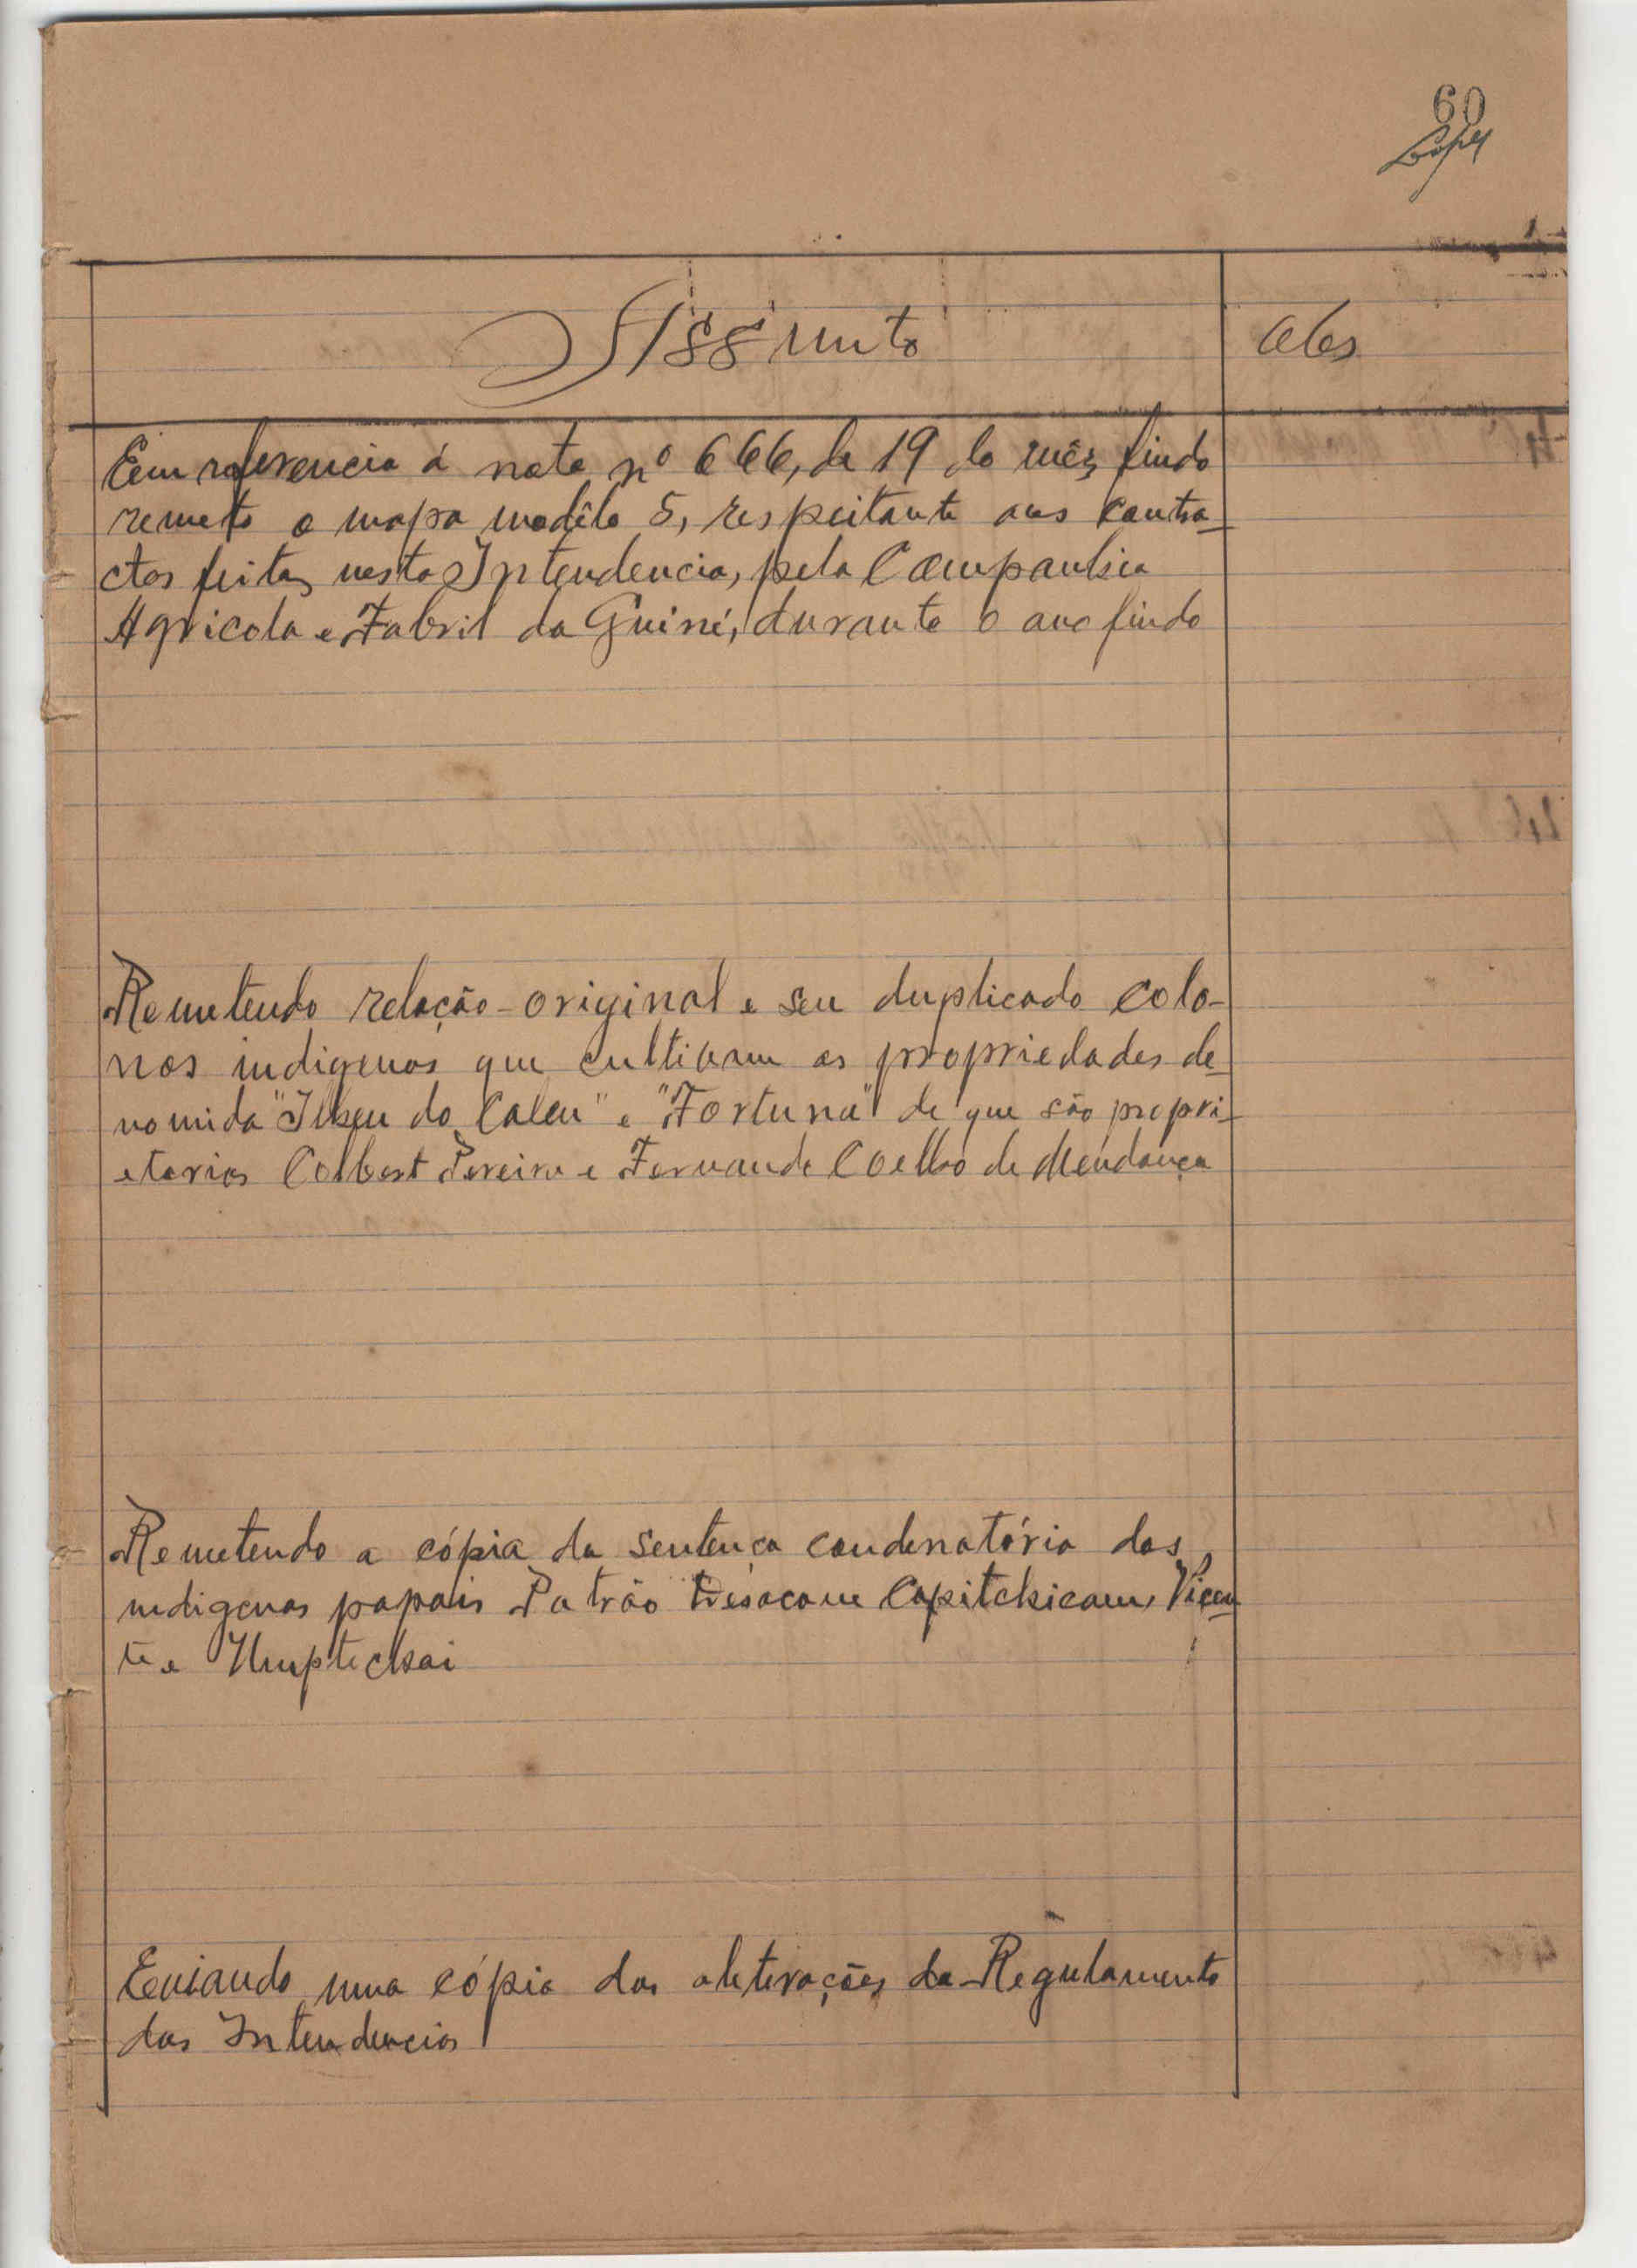 60
Lopes
Assunto
Obs
Em referencia á nota nº 666, de 19 do mês findo
remeto o mapa modêlo 5, respeitante aos contra-
ctos feitos nesta Intendencia, pela Companhia
Agricola e Fabril da Guiné, durante o ano findo
Remetendo relação-original e seu duplicado colo-
nos indigenas que cultivam as propriedades de-
nomida "Ilheu do Caleu" e "Fortuna" de que são propri-
etarios Colbert Pereira e Fernando Coelho de Mendonça
Remetendo a cópia da sentença condenatória dos
indigenas papais Patrão Capitchicam, Vicen
te e Umptechai
Enviando uma cópia das alterações do Regulamento
das Intendencias